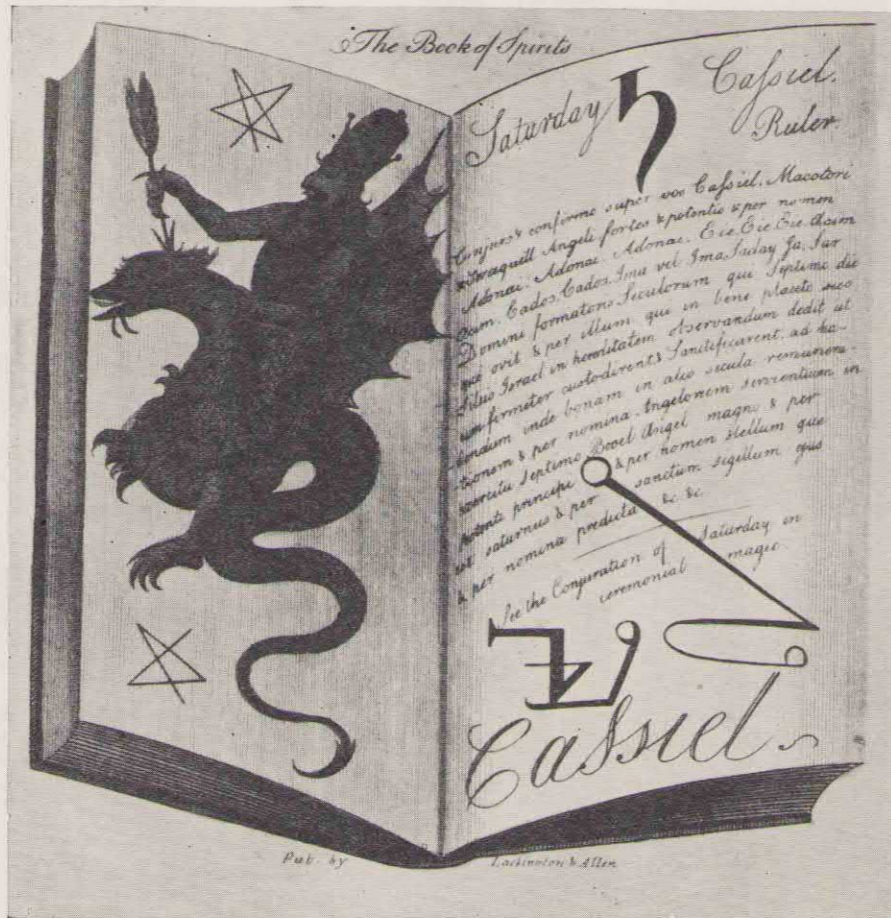 The Book of Spirits
Saturday ♄ Cafsiel.
Ruler.
Conjuro & confirmo super vos Cafsiel, Macatori
& Seraquill Angeli fortes & potentis & per nomen
Adonai. Adonai. Adonai. Eie. Eie. Eie. Acim
Cados. Cados. Ima vel Ima. Saday Ja. Sar
Domini formatoris Seculorum qui Septimo die
& per illum qui in bene placito suo
filiis Israel in hereditatem observandum dedit ut
eum firmiter custodirent & Sanctificarent, ad ha-
bendum inde bonam in alio secula remunera-
tionem & per nomina Angelorum servientium in
exercitu Septimo Booel Angel magno &
potenti principi & per nomen stellum que
est saturnus & per sanctum sigillum ejus
& per nomina predicta &c. &c.
See the Conjuration of Saturday in
ceremonial magic.
Cassiel.
Pub. by Lackington & Allen